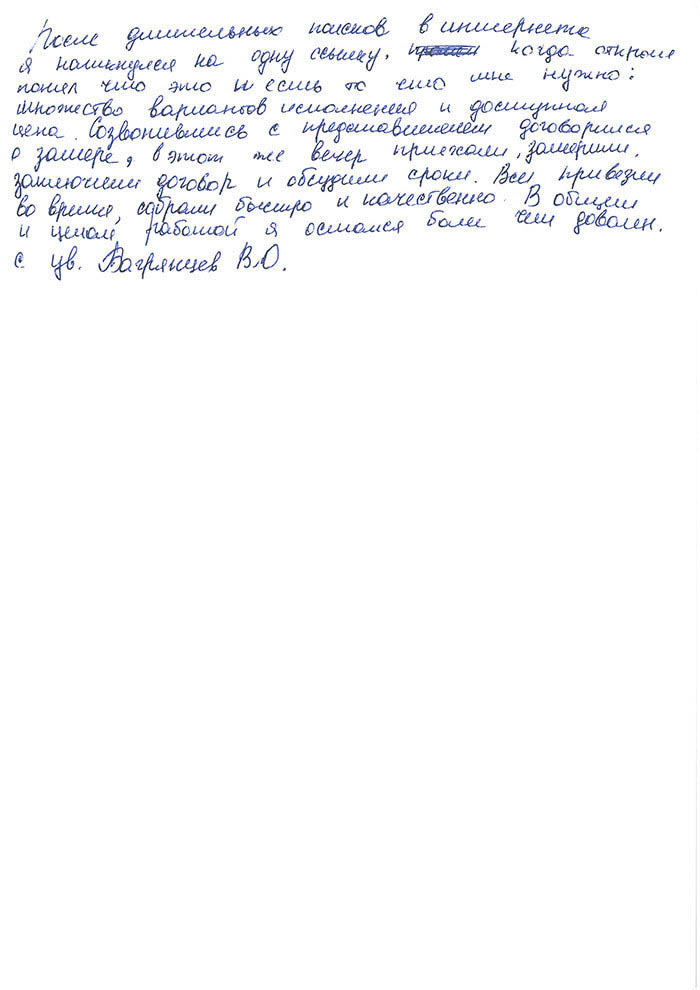 После длительных поисков в интернете
я наткнулся на одну ссылку. когда открыл
понял что это и есть то что мне нужно:
множество вариантов исполнения и доступная
цена. Созвонившись с представителем договорился
о замере, в этот же вечер приехали, замерили,
заключили договор и обсудили сроки. Все привезли
во время, собрали быстро и качественно. В общем
и целом работой я остался более чем доволен.
с ув. Вагрянцев В.О.